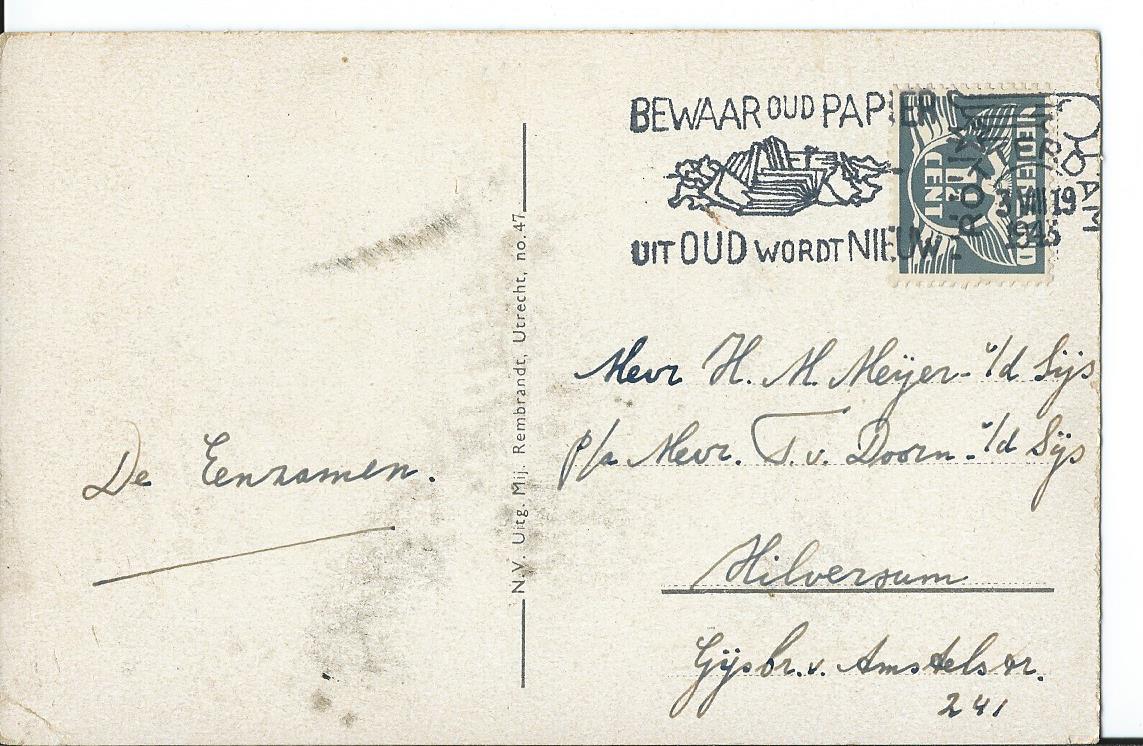 BEWAAR OUD PAPIER
UIT OUD WORDT NIEUW
3 VIII 19
1943
CENT
De Eenzamen.
N.V. Uitg. Mij. Rembrandt, Utrecht, no. 47
Mevr H. M. Meijer- v/d Sijs
p/a Mevr. T. v. Doorn- v/d Sijs
Hilversum
Gijsbr. v. Amstelstr.
241